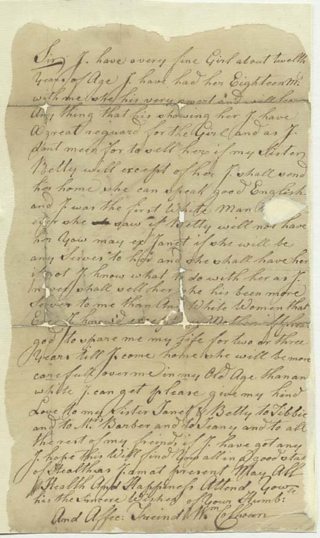 Sir I have a very fine Girl about twelth
Years of Age I have had her Eighteen Ms.
with me she his very smart and will learn
Any thing that his showing her I have
A great regward for the Girl and as I
dont mean for to sell her if my Sister
Betty will except of her I shall send
her home she can speak good English
and I was the first White Man
ever she saw if Betty well not have
her Yow may ex Janet if she will be
any Server to her and she shall have her
if not I know what to do with her as I
never shall sell her she his been more
Server to me than Any White Women that
Ever I have
god to spare me my life for two or three
Years till I come home she will be more
carefull over me in my Old Age than any
white I can get please give my kind
Love to my Sister Janet & Betty to Tibbie
and to Mr Barber and to Jeany and to all
the rest of my freends if I have got any
I hope this will find Yow all in a good state
of Health as I dm at present May All
Health And Happiness Attend Yow
his the Sincere Wishes of Yowr Humb:
And Affec: Freind Wm Colhoun